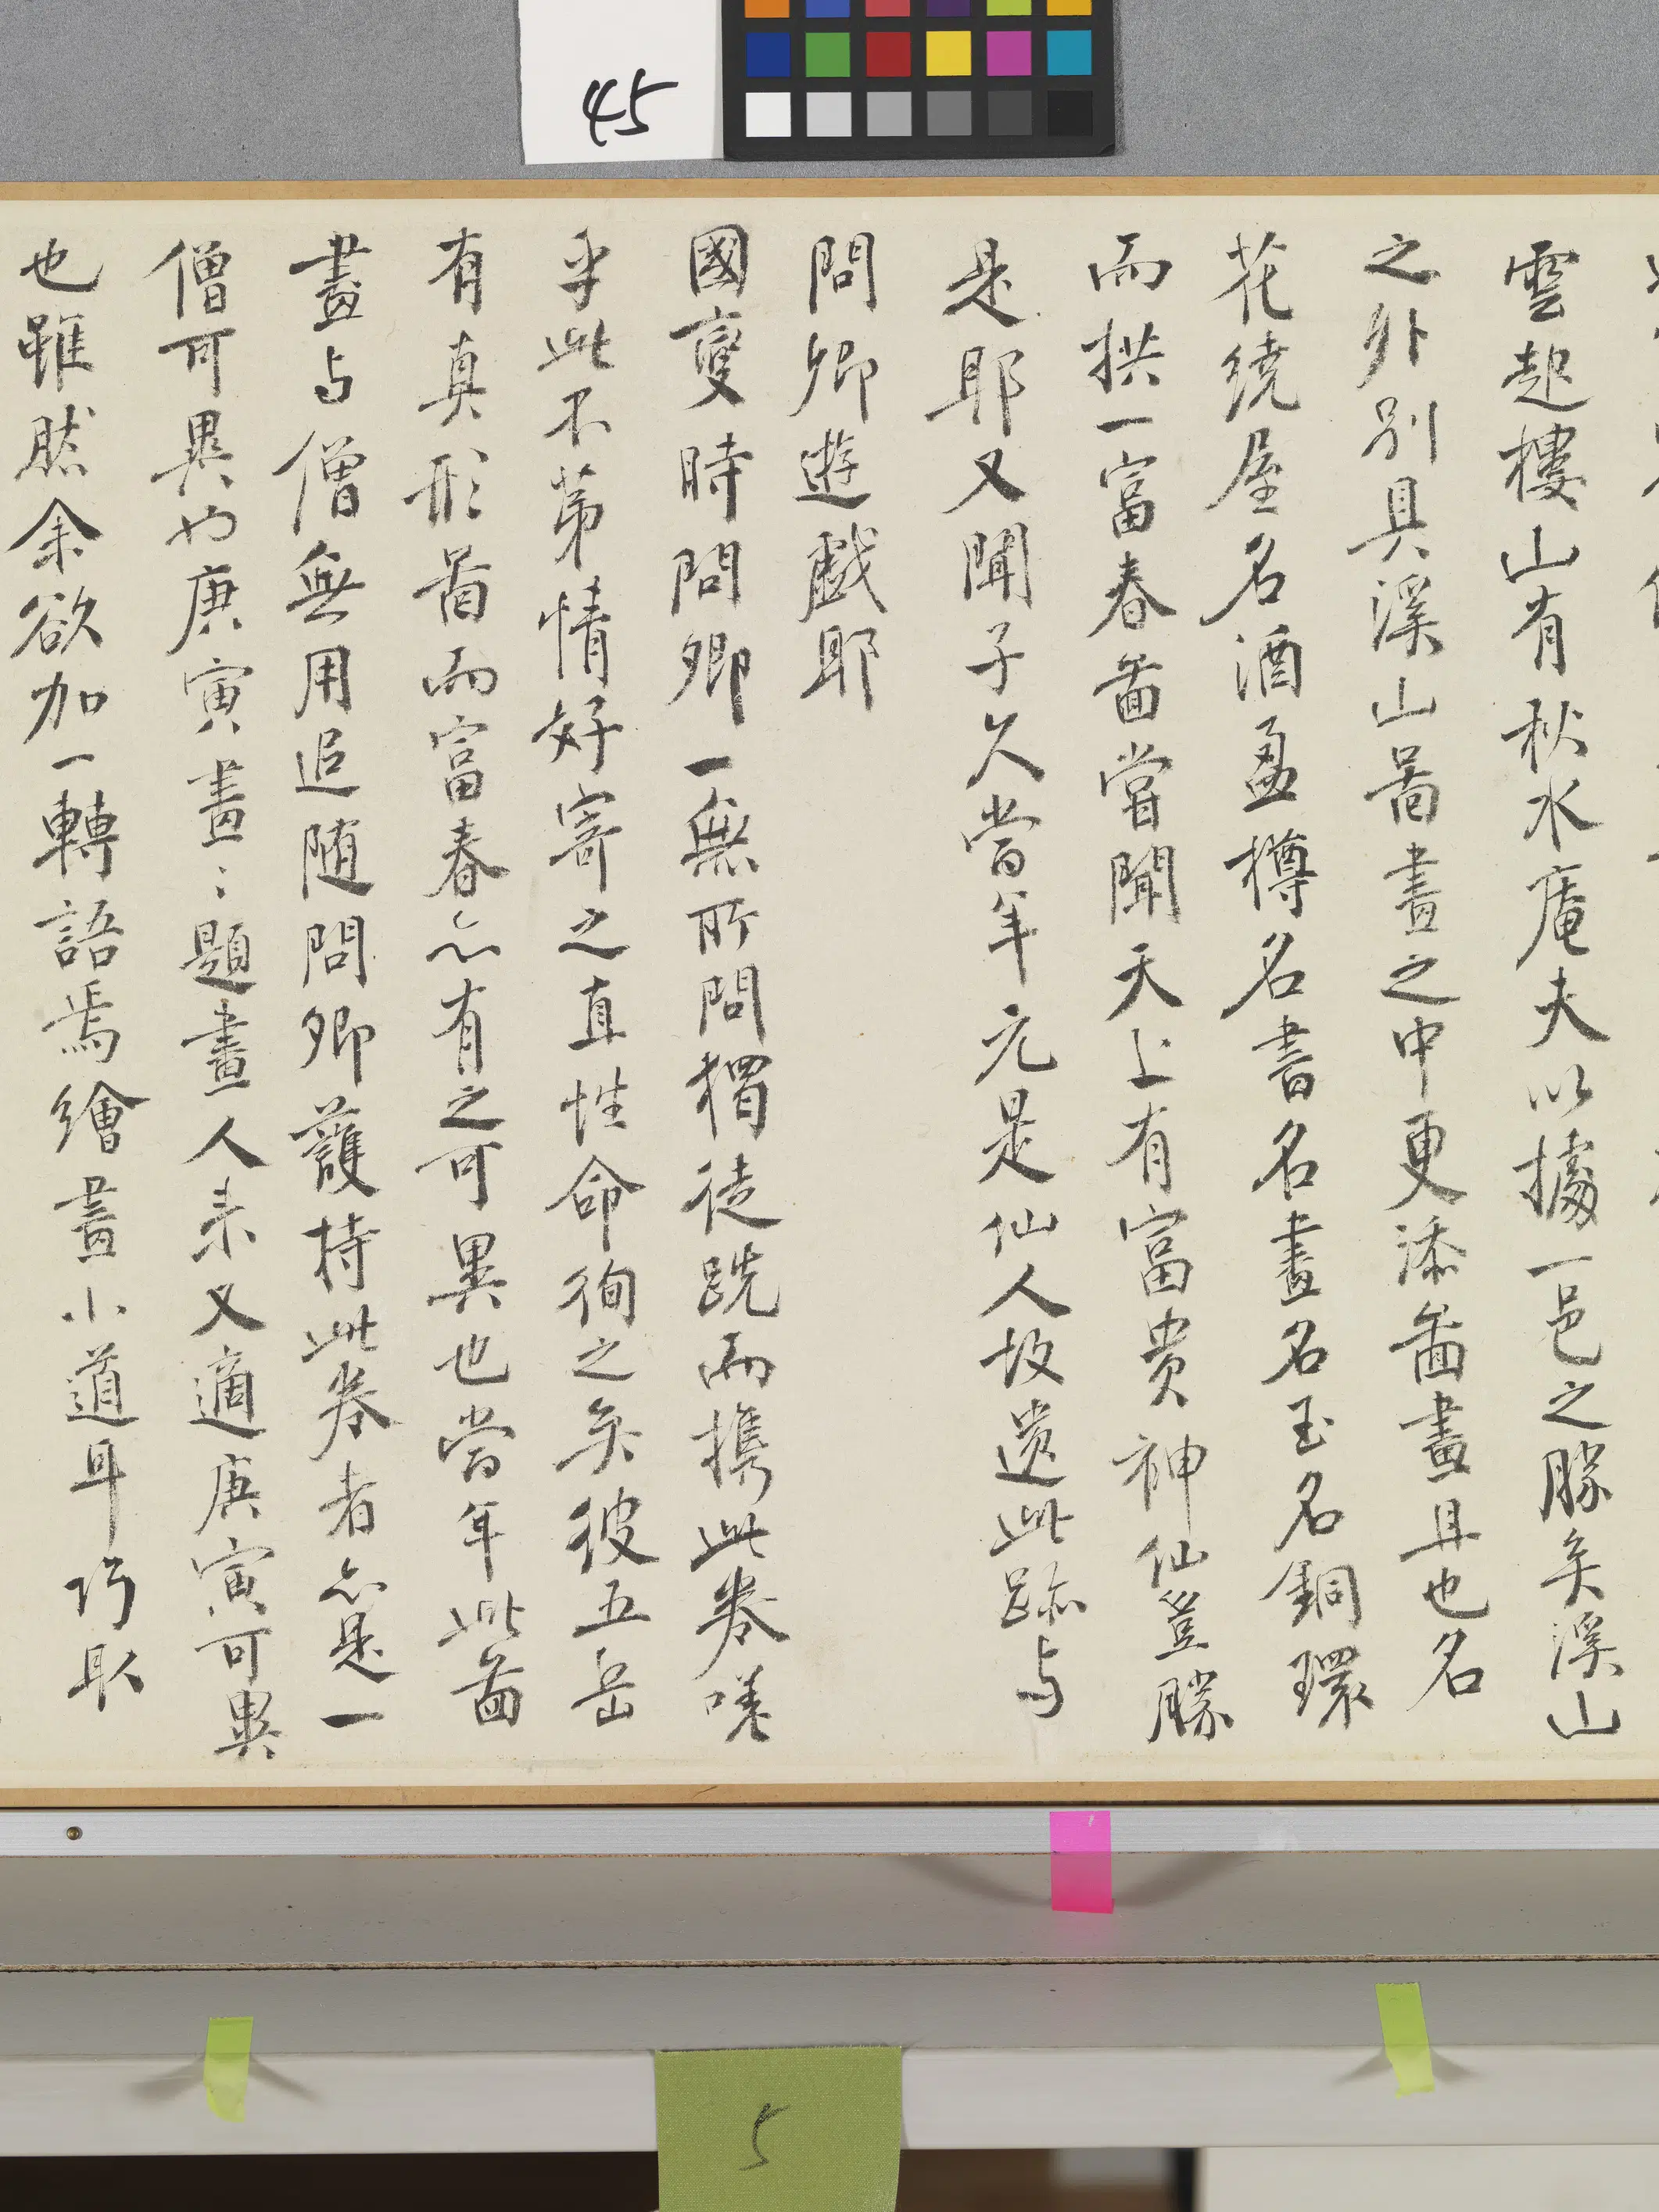 45
雲起樓山有秋水庵夫以據一邑之勝矣溪山
之外別具溪山啚畫之中更添啚畫且也名
花繞屋名酒盈樽名書名畫名玉名銅環
而拱一富春啚嘗聞天上有富貴神仙豈勝
是耶又聞子久當年元是仙人故遺此跡与
問卿遊戲耶
國變時問卿一無所問獨徒跣而携此卷嗟
乎此不第情好寄之直性命徇之矣彼五岳
有真形啚而富春亦有之可異也當年此啚
畫与僧無用追随問卿護持此卷者亦是一
僧可異也庚寅畫:題畫人来又適庚寅可異
也雖然余欲加一轉語焉繪畫小道耳巧取
5